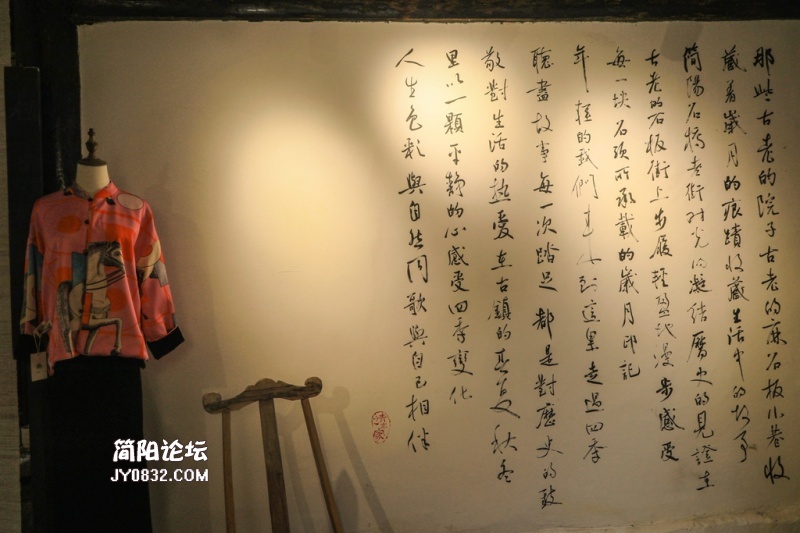 那些古老的院子古老的麻石板小巷收
藏着歲月的痕蹟收藏生活中的故事
简陽石橋老街时光的凝结曆史的見證在
古老的石板街上步履輕盈地漫步感受
每一块石頭所承載的歲月印記
年輕的我們来到這里走過四季
聽盡故事每一次踏足都是對歷史的致
敬對生活的热愛在古鎮的春夏秋冬
里以一顆平静的心感受四季變化
人生色彩與自然同歌與自己相伴
简阳论坛
JY0832.COM